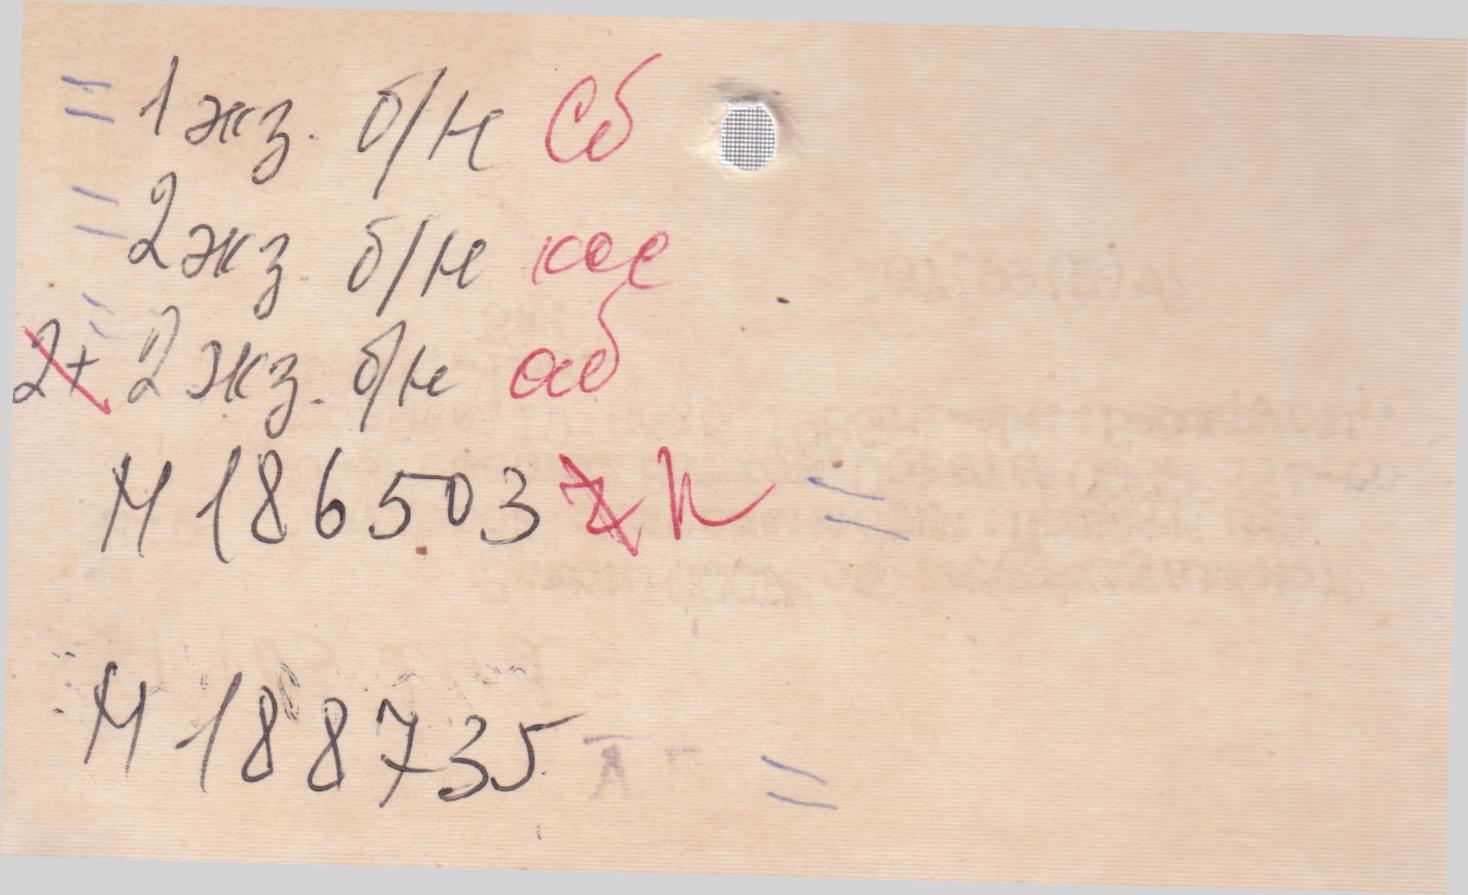 = 1 экз. б/н Сб
= 2 экз. б/н
= 2 экз. б/н аб
М 186503 h =
М 188735 =